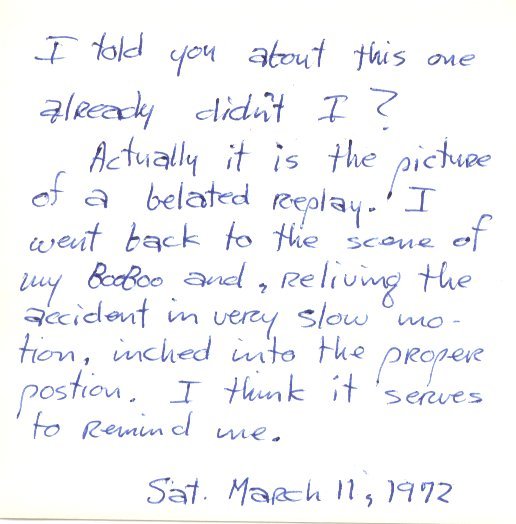 I told you about this one
already didn't I?
Actually it is the picture
of a belated replay. I
went back to the scene of
my BooBoo and, reliving the
accident in very slow mo-
tion, inched into the proper
postion. I think it serves
to remind me.
Sat. March 11, 1972